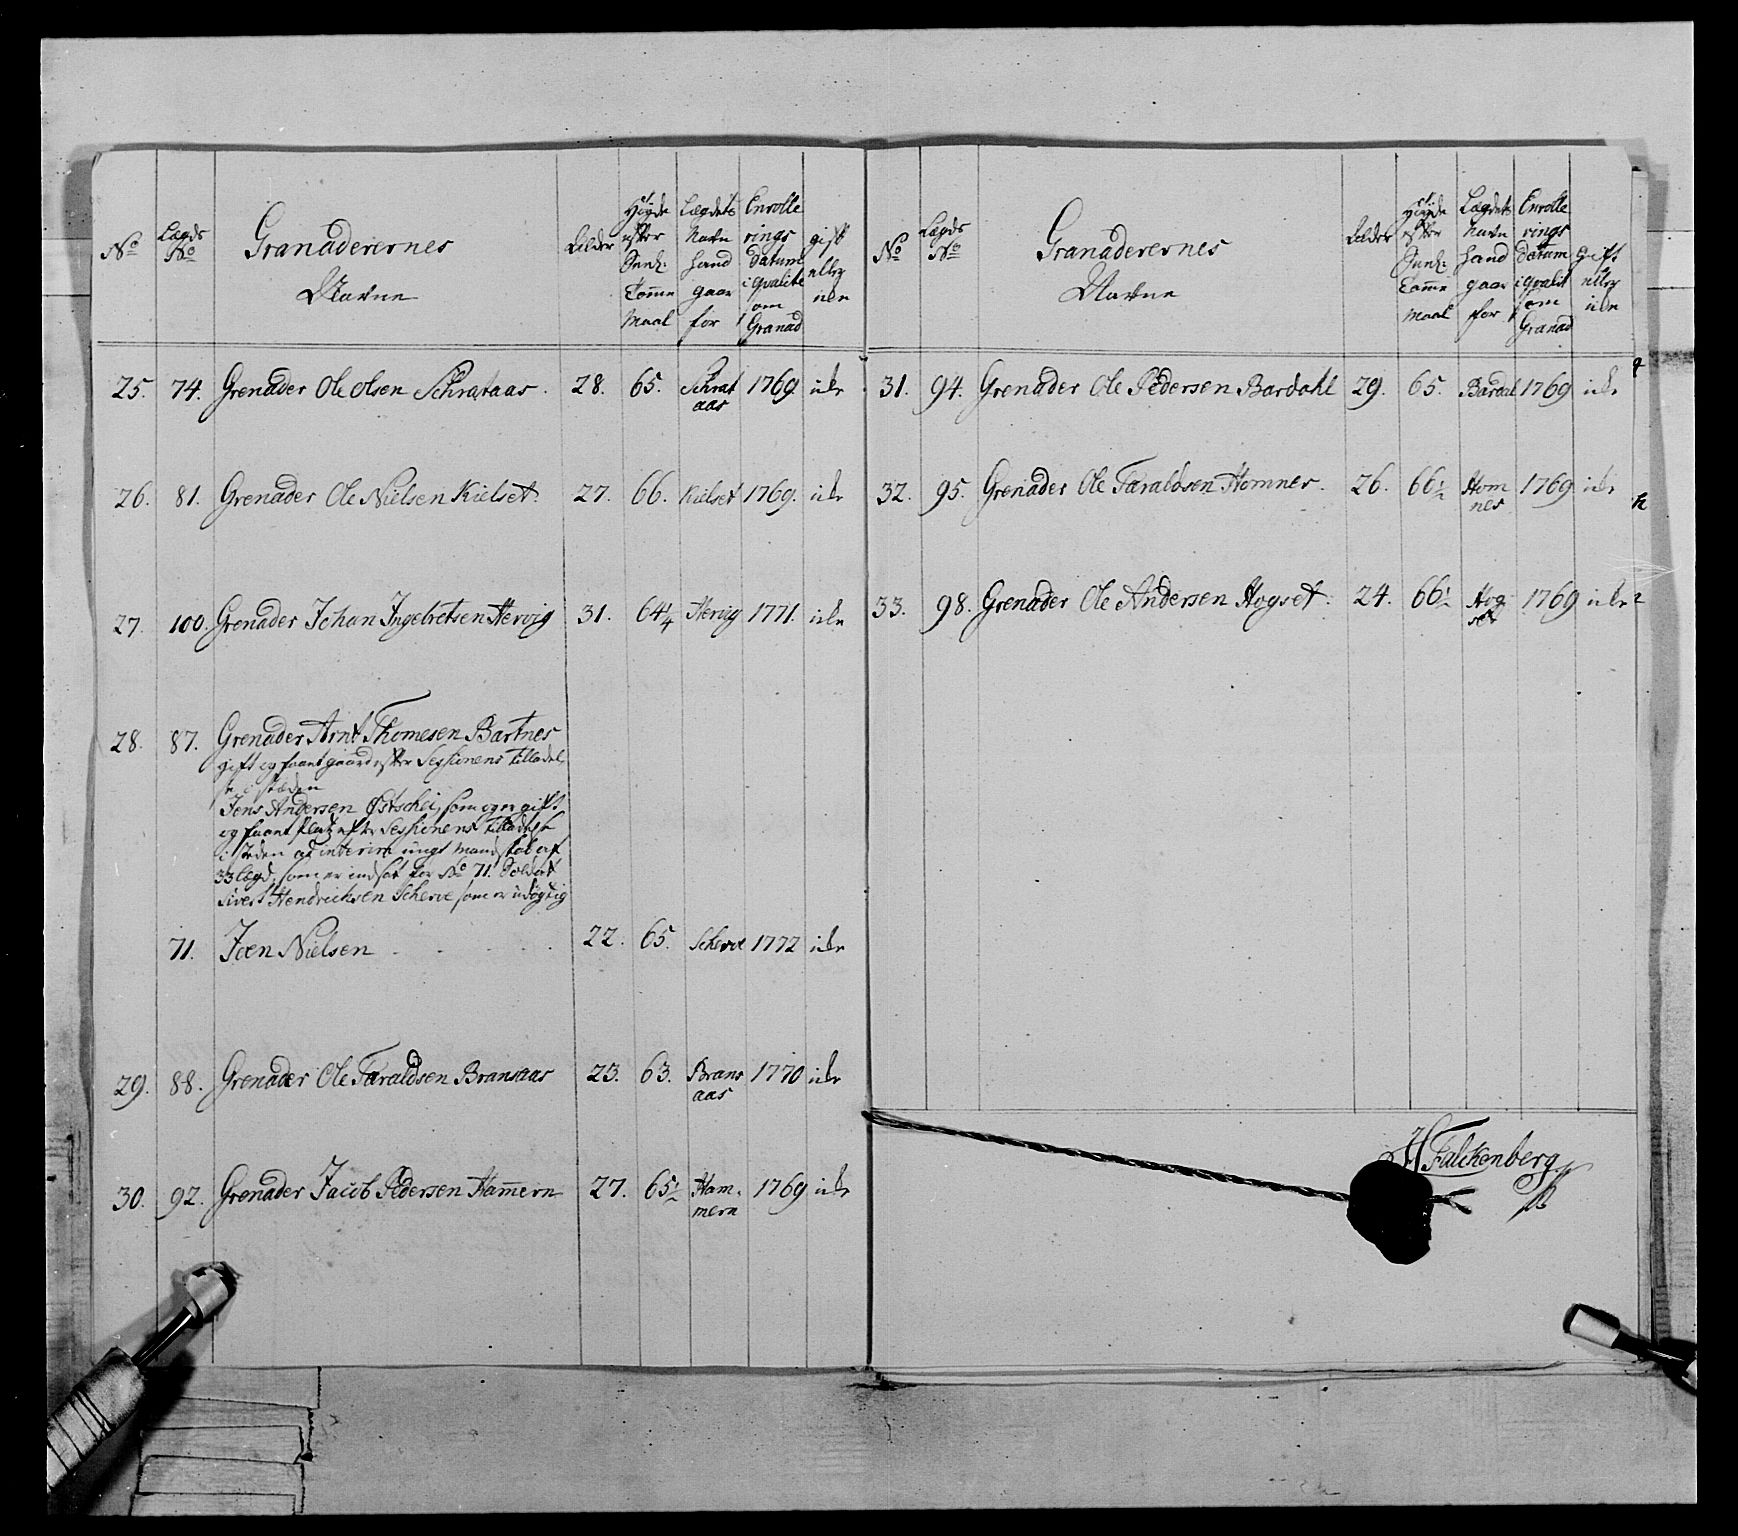 No
Lægds No
Granaderernes Navne
Alder
Høyde efter Sinkl: Tomme Maal
Lægdets Navn hand gaar for
Enrolle rings datum i qvalite som Granad
gift eller icke
25. 74. Grenader Ole Olsen Schrataas. 28. 65. Schrat aas 1769. icke
26. 81. Grenader Ole Nielsen Kielset. 27. 66. Kielset 1769. icke
27. 100. Grenader Johan Ingebretsen Hervig 31. 64¼ Hervig 1771. icke
28. 87. Grenader Arnt Thomesen Bartnes
gift og faaet gaard efter Sessionens tilladel,
se, i stæden
Jens Andersen Østschei, som og er gift
og faaet Plads efter Sessionens tilladelse
i steden ad interim ungt Mandskab af
33 lægd, som er indsat for No 71. Soldat
Sivert Hendricksen Scherve som er udøgtig
71. Joen Nielsen 22. 65. Scherve 1772 icke
29. 88. Grenader Ole Taraldsen Bransaas 23. 63. Brans aas 1770 icke
30. 92. Grenader Jacob Pedersen Ham̄ern 27. 65½ Ham, mern 1769 icke
No
Lægds No
Granaderernes Navne
Alder
Høyde efter Sinkl: Tomme Maal
Lægdets Navn hand gaar for
Enrolle rings datum i qvalit som Granad
gift eller icke
31. 94. Grenader Ole Pedersen Bardahl 29. 65. Bardal 1769 icke
32. 95. Grenader Ole Taraldsen Homnes. 26. 66½ Hom nes 1769 icke
33. 98. Grenader Ole Andersen Hogset. 24. 66½ Hog set 1769 icke
H Falckenberg